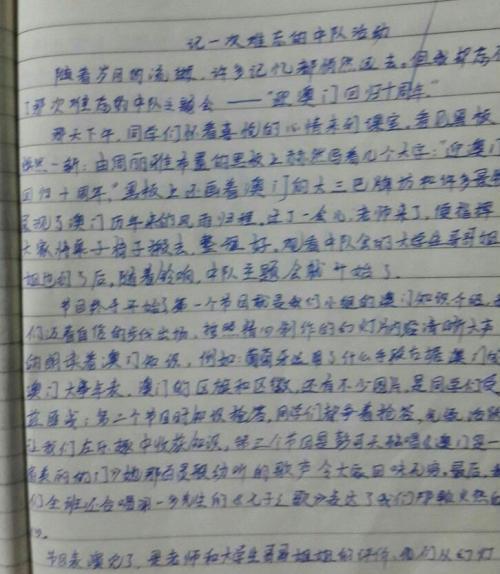 记一次难忘的中队活动
随着岁月的流逝，许多记忆都悄然逝去。但我却忘不
了那次难忘的中队主题会——“迎澳门回归十周年”
那天下午，同学们怀着喜悦的心情来到课室，看见黑板
焕然一新：由周丽雅布置的黑板上赫然写着几个大字：“迎澳门
回归十周年”黑板上还画着澳门的大三巴牌坊和许多
呈现了澳门历年来的风雨归程。过了一会儿，老师来了，便指挥
大家将桌子椅子搬去，整理好。观看中队会的大学生哥哥姐
姐也到了后，随着铃响，中队主题会就开始了。
节目终于开始了第一个节目就是我们小组的澳门知识介绍，
们迈着自信的步伐出场，按照精心制作的幻灯片内容清晰大声
的朗读着澳门知识，例如：葡萄牙运用了什么手段占据澳门
澳门大事年表，澳门的区旗和区徽，还有不少图片，是同学们
第二个节目时加板抢答，同学们都争着抢答，
让我们在乐趣中收获知识，第三个节目是
美丽的 她那百灵般动听的歌声令大家回味无穷，最后，
们全班还合唱闻一多先生的《七子之歌》表达了我们那颗火热的
心。
节目表演完了，是老师和大学生哥哥姐姐的评价，他们从幻灯